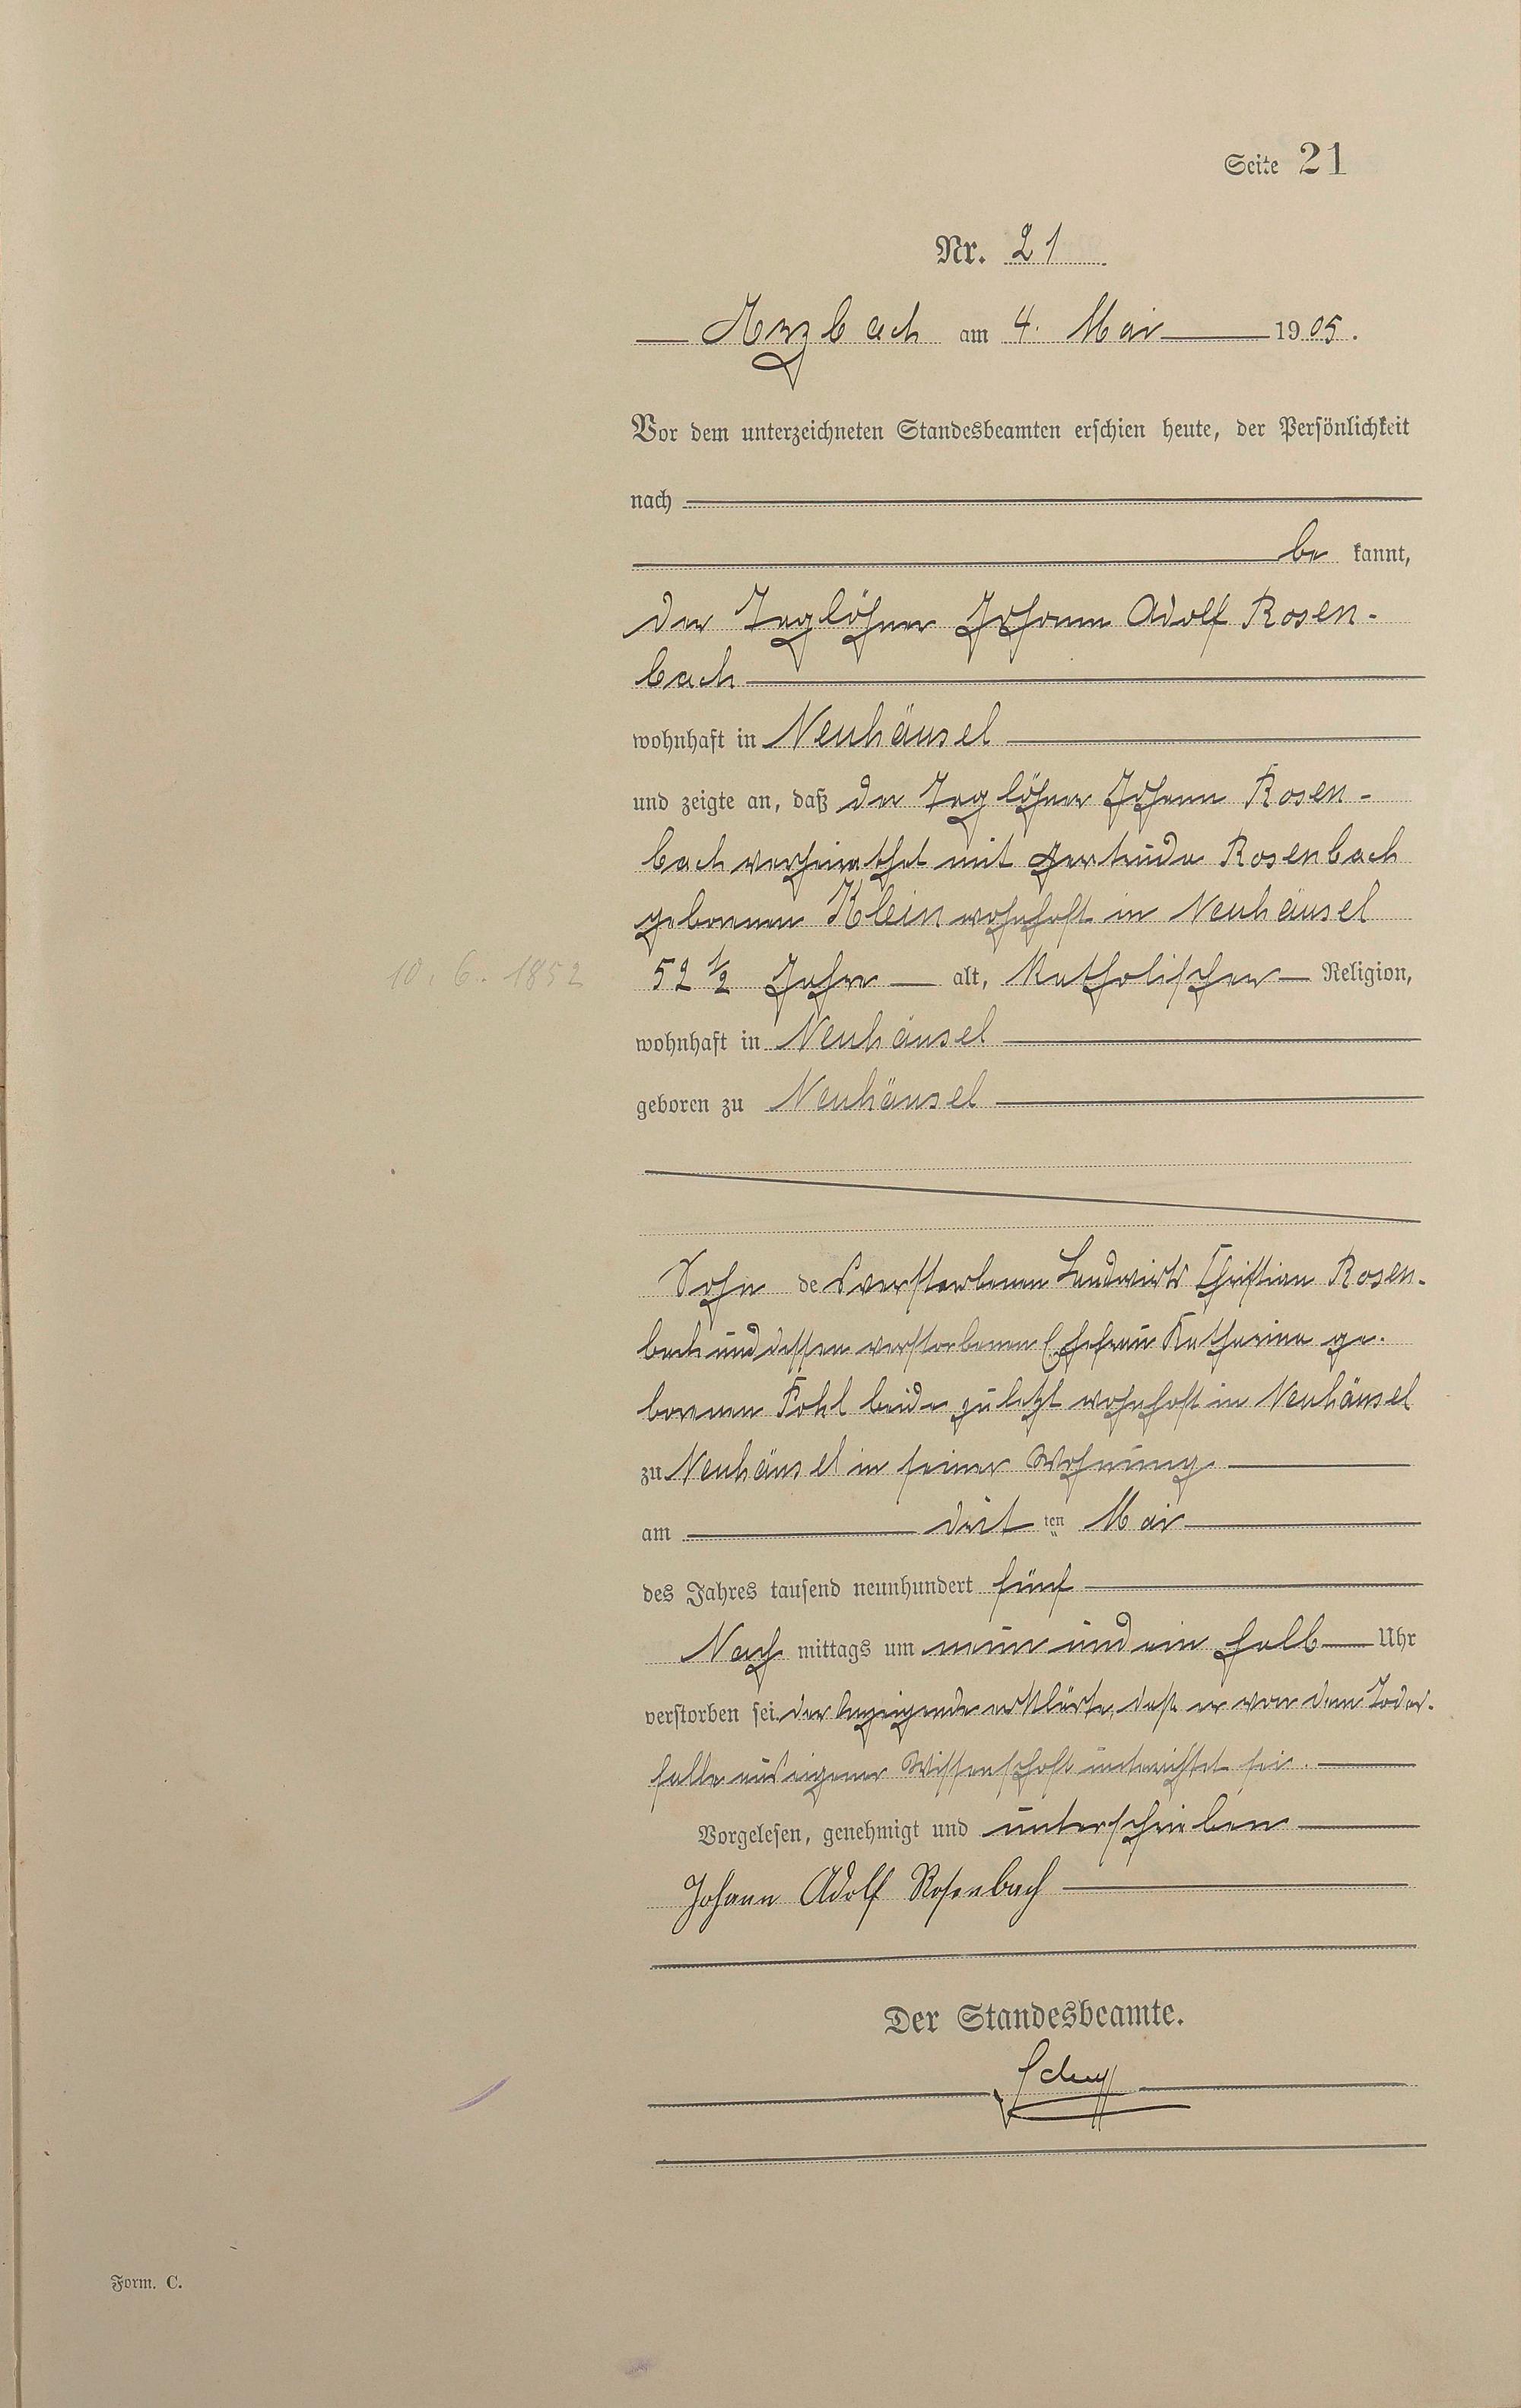 Seite 21
Nr. 21
Arzbach am 4. Mai 1905.
Vor dem unterzeichneten Standesbeamten erschien heute, der Persönlichkeit
nach
be kannt,
der Taglöhner Johann Adolf Rosen-
bach
wohnhaft in Neuhäusel
und zeigte an, daß der Taglöhner Johann Rosen-
bach verheirathet mit Gertruda Rosenbach
geborenen Klein wohnhaft in Neuhäusel
10. 6. 1852
52 1/2 Jahre alt, Katholischer Religion,
wohnhaft in Neuhäusel
geboren zu Neuhäusel
Sohn des verstorbenen Landwirts Christian Rosen-
bach und dessen verstorbenen Ehefrau Katharina ge-
borenen Pohl beide zuletzt wohnhaft in Neuhäusel
zu Neuhäusel in seiner Wohnung
am drit ten Mai
des Jahres tausend neunhundert fünf
Nach mittags um neun und ein halb Uhr
verstorben sei. Der Anzeigende erklärte, daß er von dem Todes-
falle aus eigener Wissenschaft unterrichtet sei.
Vorgelesen, genehmigt und unterschrieben
Johann Adolf Rosenbach
Der Standesbeamte.
Form. C.